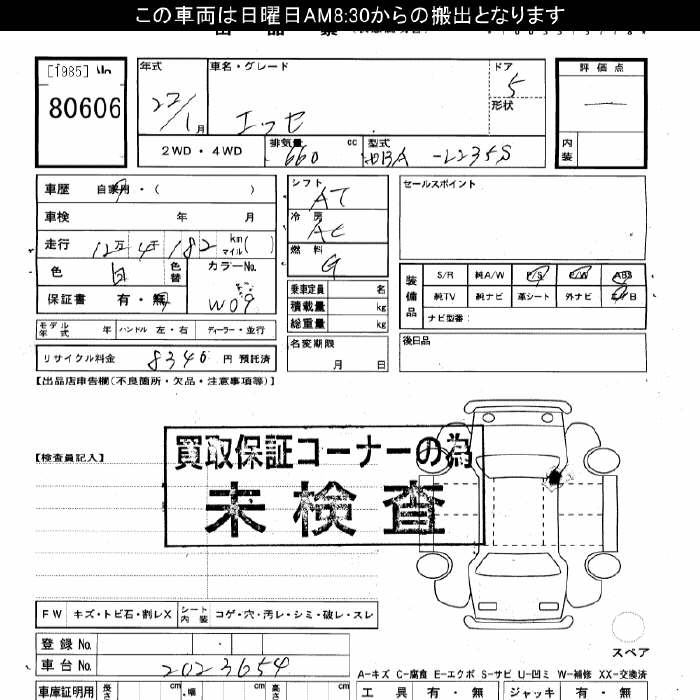 この車両は日曜日AM8:30からの搬出となります
[1985]
80606
年式 22/1月
車名・グレード エッセ
ドア 5
形状
評価点 —
内装
2WD・4WD
排気量 660 cc
型式 -L235S
車歴 自家用・( )
車検 年 月
走行 12万4千182 km マイル( )
色 白 色替
カラーNo. W09
保証書 有・無
モデル年式 年 ハンドル 左・右 ディーラー・並行
リサイクル料金 8340 円 預託済
シフト AT
冷房 AC
燃料 G
乗車定員 名
積載量 kg
総重量 kg
名変期限 月 日
セールスポイント
装備品
S/R 純A/W P/S P/W ABS
純TV 純ナビ 革シート 外ナビ エアB
ナビ型番:
後日品
【出品店申告欄(不良箇所・欠品・注意事項等)】
【検査員記入】
買取保証コーナーの為
未検査
FW キズ・トビ石・割レX シート内装 コゲ・穴・汚レ・シミ・破レ・スレ
スペア
登録No.
車台No. 2023654
A-キズ C-腐食 E-エクボ S-サビ U-凹ミ W-補修 XX-交換済
車庫証明用 長さ cm 幅 cm 高さ cm
工具 有・無 ジャッキ 有・無